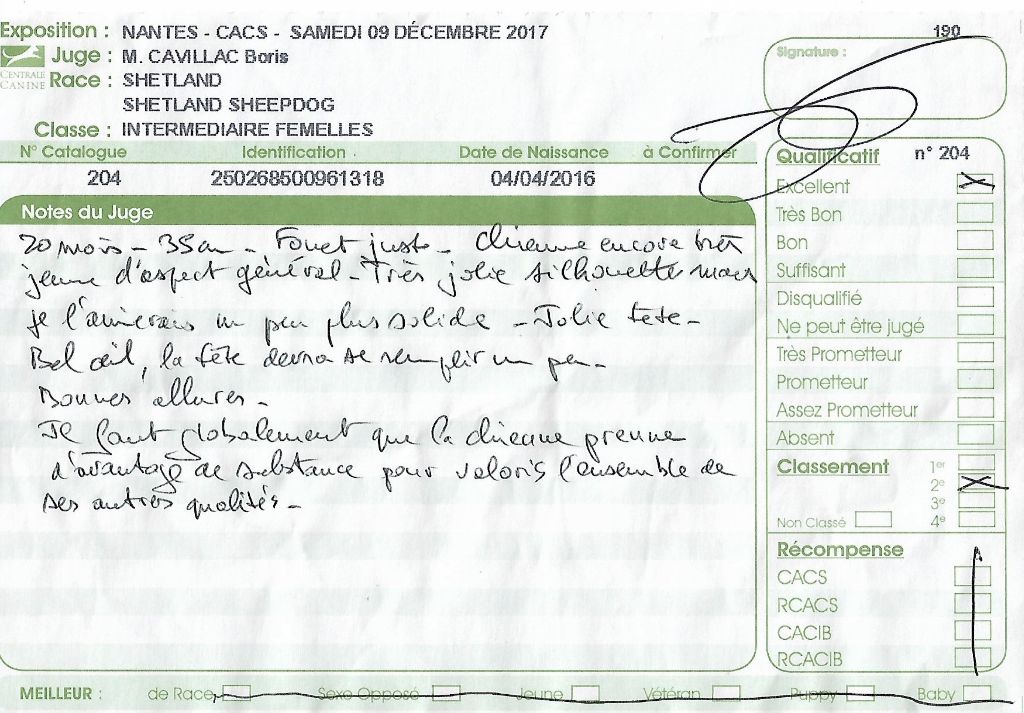 Exposition : NANTES - CACS - SAMEDI 09 DÉCEMBRE 2017
190
CENTRALE CANINE
Juge : M. CAVILLAC Boris
Signature :
Race : SHETLAND
SHETLAND SHEEPDOG
Classe : INTERMEDIAIRE FEMELLES
N° Catalogue Identification Date de Naissance à Confirmer
204 250268500961318 04/04/2016
Notes du Juge
20 mois - 35 cm - Fouet juste - Chienne encore très
jeune d'aspect général - Très jolie silhouette mais
je l'aimerais un peu plus solide - Jolie tête -
Bel œil, la tête devra se remplir un peu -
Bonnes allures -
Il faut globalement que la chienne prenne
d'avantage de substance pour valoris l'ensemble de
ses autres qualités -
Qualificatif n° 204
Excellent X
Très Bon
Bon
Suffisant
Disqualifié
Ne peut être jugé
Très Prometteur
Prometteur
Assez Prometteur
Absent
Classement 1er
2e X
3e
Non Classé 4e
Récompense
CACS
RCACS
CACIB
RCACIB
MEILLEUR : de Race Sexe Opposé Jeune Vétéran Puppy Baby